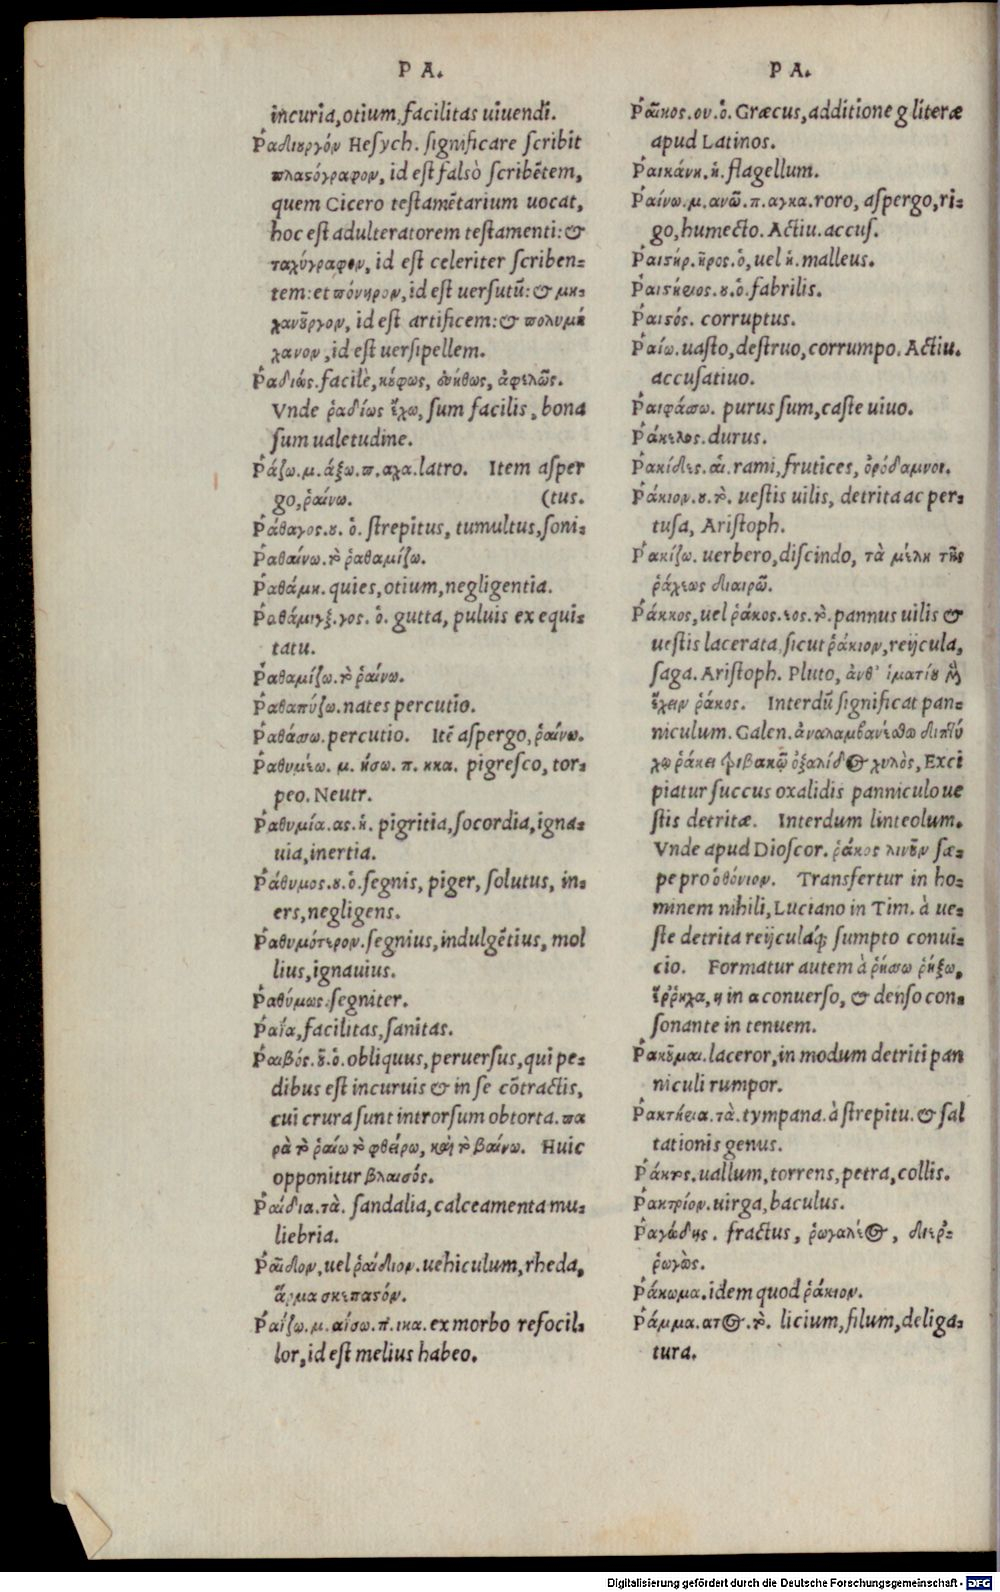 Ρ Α.
incuria, otium, facilitas uiuendi.
Ῥαδιουργόν Hesych. significare scribit
πλαστόγραφον, id est falsò scribētem,
quem Cicero testamētarium uocat,
hoc est adulteratorem testamenti: &
ταχύγραφον, id est celeriter scriben=
tem: et πόνηρον, id est uersutū: & μη=
χανοῦργον, id est artificem: & πολυμή
χανον, id est uersipellem.
Ῥαδιώς. facilè, κούφως, συνήθως, ἀφελῶς.
Vnde ῥαδίως ἔχω, sum facilis, bona
sum ualetudine.
Ῥάζω. μ. άξω. π. αχα. latro. Item asper
go, ῥαίνω. (tus.
Ῥάθαγος. ου. ὁ. strepitus, tumultus, soni=
Ῥαθαίνω. τὸ ῥαθαμίζω.
Ῥαθάμη. quies, otium, negligentia.
Ῥαθάμιγξ. γος. ὁ. gutta, puluis ex equi=
tatu.
Ῥαθαμίζω. τὸ ῥαίνω.
Ῥαθαπύζω. nates percutio.
Ῥαθάσσω. percutio. Itē aspergo, ῥαίνω.
Ῥαθυμέω. μ. ήσω. π. ηκα. pigresco, tor=
peo. Neutr.
Ῥαθυμία. ας. ἡ. pigritia, socordia, igna=
uia, inertia.
Ῥάθυμος. ου. ὁ. segnis, piger, solutus, in=
ers, negligens.
Ῥαθυμότερον. segnius, indulgētius, mol
lius, ignauius.
Ῥαθύμως. segniter.
Ῥαΐα, facilitas, sanitas.
Ῥαιβός. οῦ. ὁ. obliquus, peruersus, qui pe=
dibus est incuruis & in se cōtractis,
cui crura sunt introrsum obtorta. πα
ρὰ τὸ ῥαίω τὸ φθείρω, καὶ τὸ βαίνω. Huic
opponitur βλαισός.
Ῥαίδια. τὰ. sandalia, calceamenta mu=
liebria.
Ῥαῖδον, uel ῥαίδιον. uehiculum, rheda,
ἅρμα σκεπαστόν.
Ῥαΐζω. μ. αΐσω. π. ικα. ex morbo refocil=
lor, id est melius habeo.
Ρ Α.
Ῥαῖκος. ου. ὁ. Græcus, additione g literæ
apud Latinos.
Ῥαικάνη. ἡ. flagellum.
Ῥαίνω. μ. ανῶ. π. αγκα. roro, aspergo, ri=
go, humecto. Actiu. accus.
Ῥαιστήρ. ῆρος. ὁ, uel ἡ. malleus.
Ῥαιστήριος. ου. ὁ. fabrilis.
Ῥαιστός. corruptus.
Ῥαίω. uasto, destruo, corrumpo. Actiu.
accusatiuo.
Ῥαιφάσσω. purus sum, castè uiuo.
Ῥάκελος. durus.
Ῥακίδες. αἱ. rami, frutices, ὀρόδαμνοι.
Ῥάκιον. ου. τὸ. uestis uilis, detrita ac per=
tusa, Aristoph.
Ῥακίζω. uerbero, discindo, τὰ μέλη τῆς
ῥάχεως διαιρῶ.
Ῥάκκος, uel ῥάκος. εος. τὸ. pannus uilis &
uestis lacerata, sicut ῥάκιον, reijcula,
saga. Aristoph. Pluto, ἀνθ' ἱματίου μὲν
ἔχειν ῥάκος. Interdū significat pan=
niculum. Galen. ἀναλαμβανέσθω διπτύ
χῳ ῥάκει τριβακῷ ὀξαλίδος χυλὸς, Exci
piatur succus oxalidis panniculo ue
stis detritæ. Interdum linteolum.
Vnde apud Dioscor. ῥάκος λινοῦν sæ=
pe pro ὀθόνιον. Transfertur in ho=
minem nihili, Luciano in Tim. à ue=
ste detrita reijculáq; sumpto conui=
cio. Formatur autem à ῥήσσω ῥήξω,
ἔῤῥηχα, η in α conuerso, & denso con=
sonante in tenuem.
Ῥακοῦμαι. laceror, in modum detriti pan
niculi rumpor.
Ῥακτήρια. τὰ. tympana. à strepitu. & sal
tationis genus.
Ῥάκτος. uallum, torrens, petra, collis.
Ῥακτρίον. uirga, baculus.
Ῥαγώδης. fractus, ῥωγαλέος, διεῤ=
ῥωγὼς.
Ῥάκωμα. idem quod ῥάκιον.
Ῥάμμα. ατος. τὸ. licium, filum, deliga=
tura.
Digitalisierung gefördert durch die Deutsche Forschungsgemeinschaft - DFG